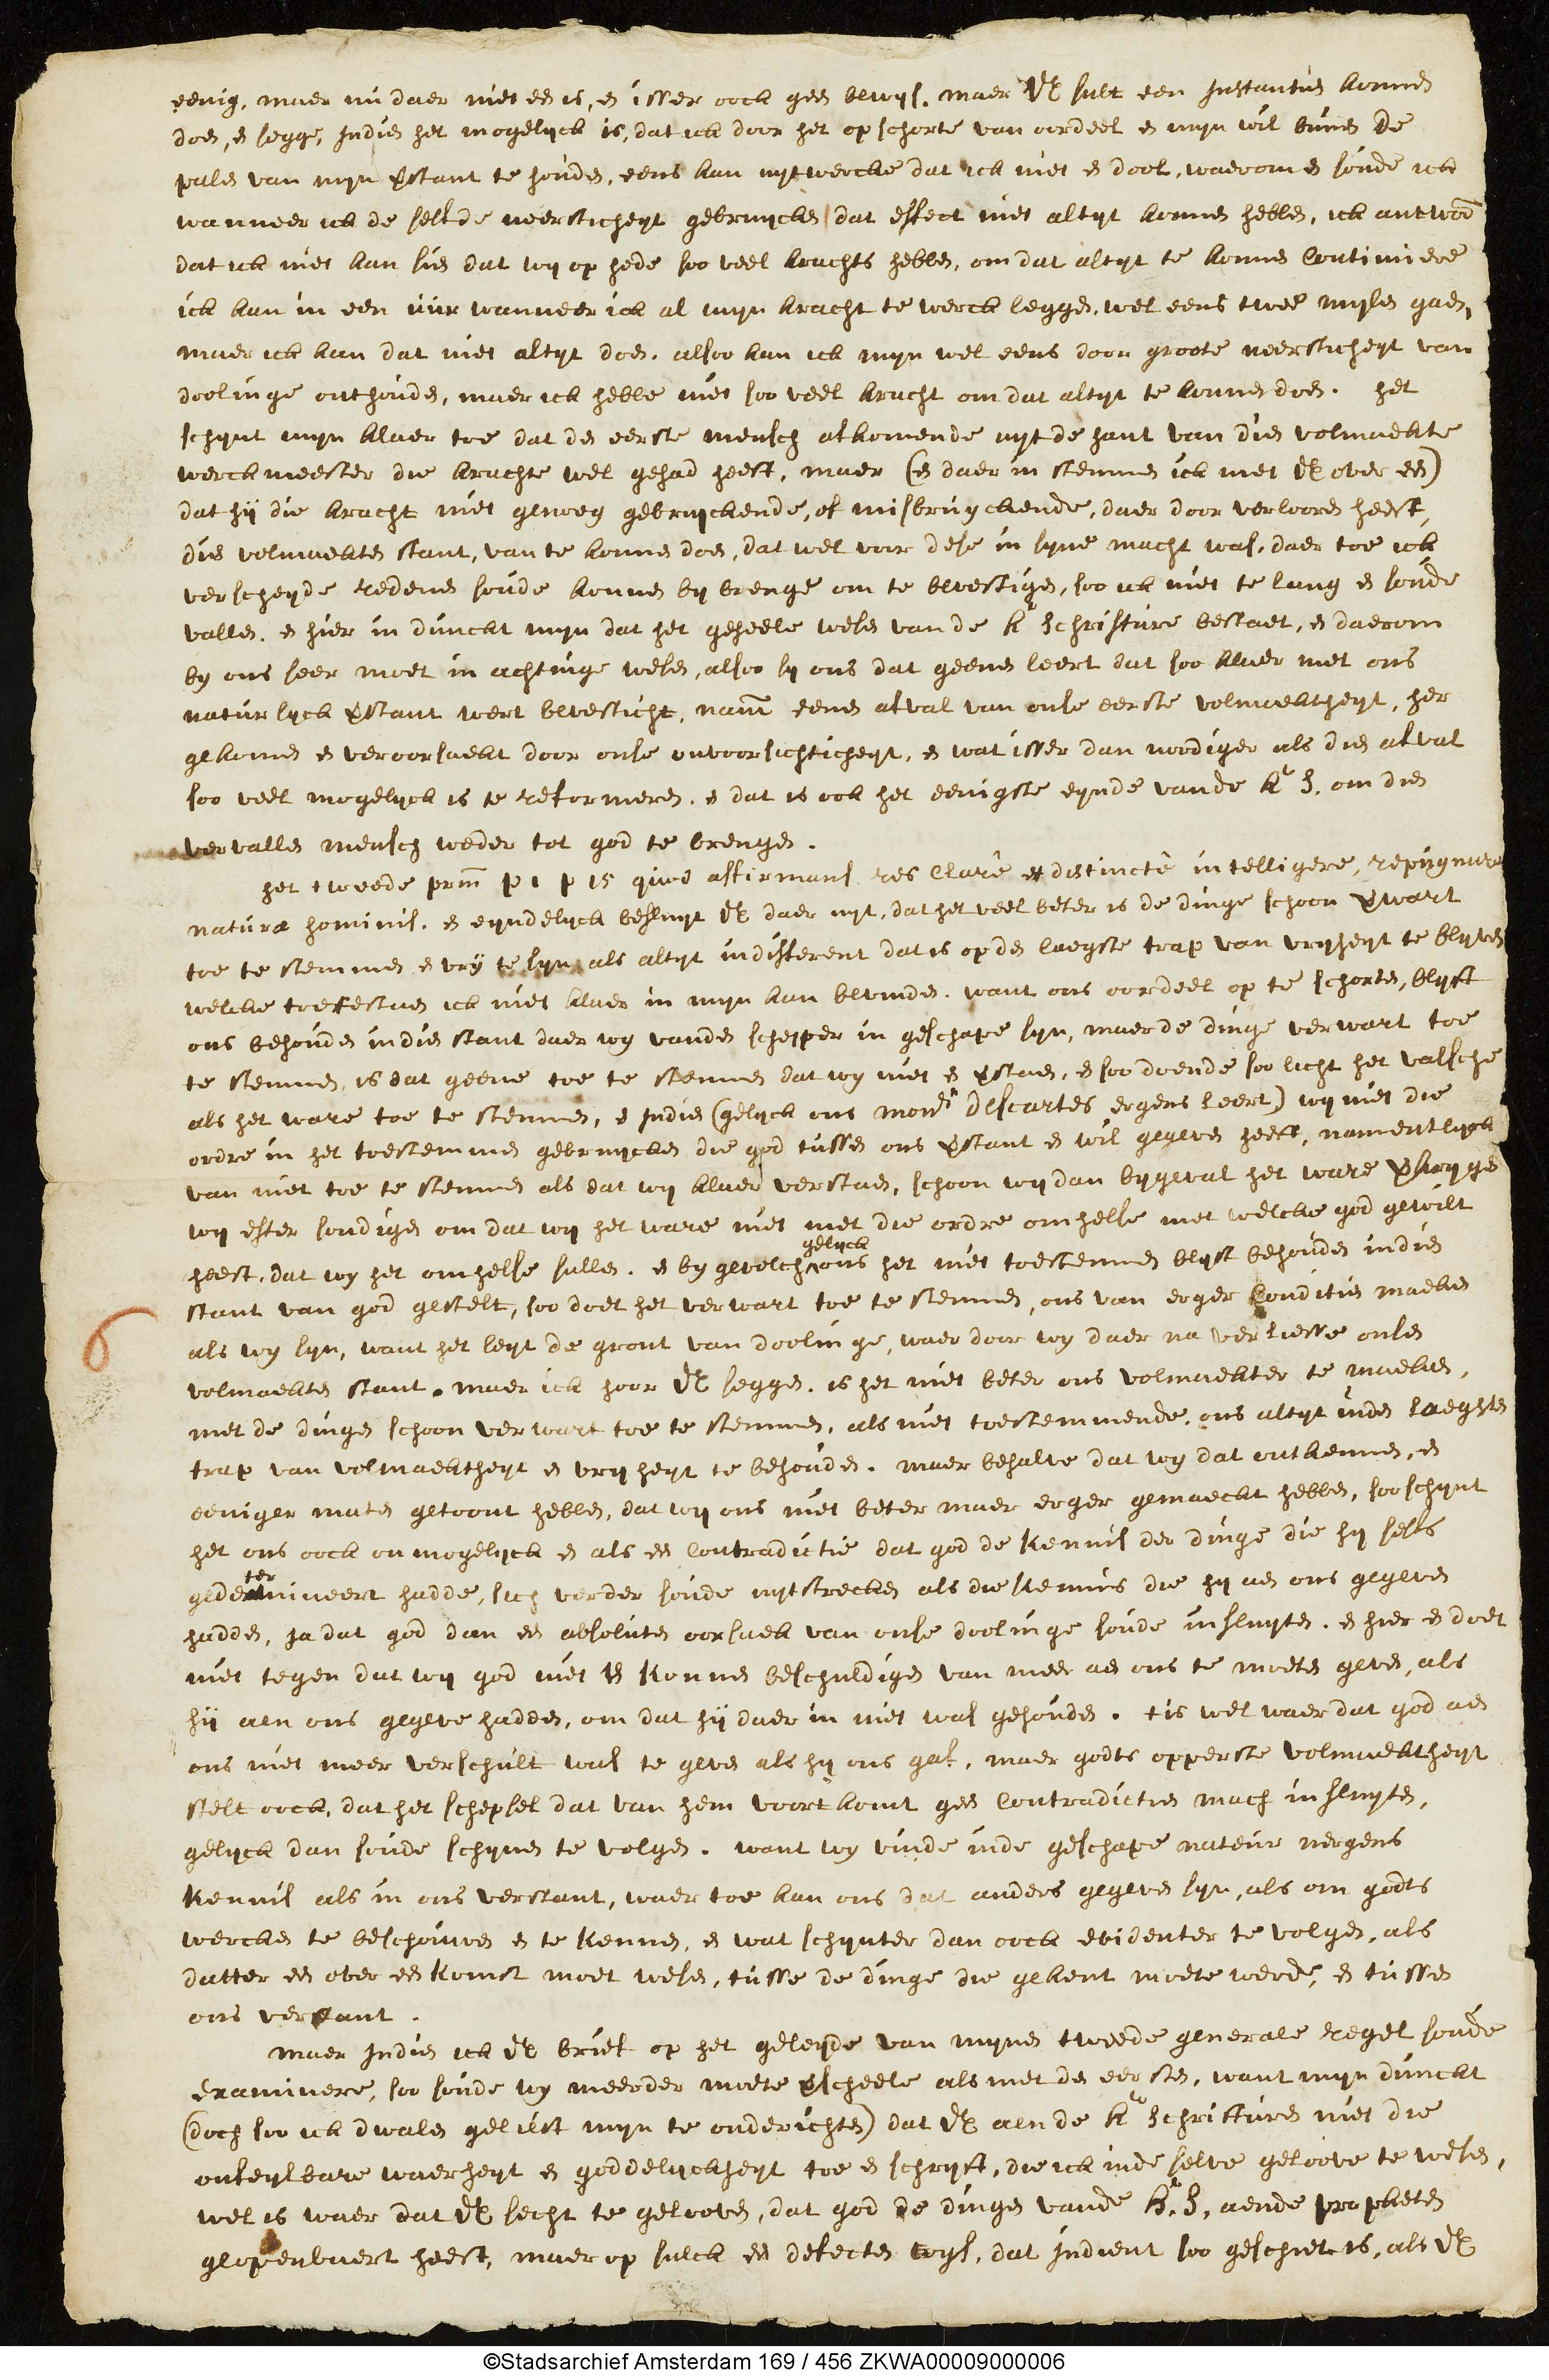 eenig, maer nu daer niet en is, en isser oock geen bewys. maer UE sult een Instantie konnen
doen, en segge, Indien het mogelyck is, dat ick door het opschorte van oordeel en myn wil binnen de
palen van myn verstant te houden, eens kan uytwercke dat ick niet en dool, waerom en soude ick
wanneer ick de selfde neersticheyt gebruycken dat effect niet altyt konnen hebben, ick antwoord
dat ick niet kan sien dat wy op hede soo veel krachts hebben, om dat altyt te konnen Continuere
ick kan in een uur wanneer ick al myn kracht te werck leggen, wel eens twee mylen gaen,
maer ick kan dat niet altyt doen. alsoo kan ick myn wel eens door groote neersticheyt van
doolinge onthouden, maer ick hebbe niet soo veel kracht om dat altyt te konnen doen. het
schynt myn klaer toe dat den eerste mensch afkomende uyt de hant van dien volmaekte
werckmeester die krachte wel gehad heeft, maer (en daer in stemmen ick met UE over een)
dat hij die kracht niet genoeg gebruyckende, of misbruyckende, daer door verlooren heeft,
dien volmaekten stant, van te konnen doen, dat wel voor dese in syne macht was, daer toe ick
verscheyde redenen soude konnen by brenge om te bevestigen, soo ick niet te lang en soude
vallen. en hier in dunckt myn dat het geheele wesen van de H schrifture bestaet, en daerom
by ons seer moet in achtinge wesen, alsoo sy ons dat geene leert dat soo klaer met ons
naturlyck verstant wert bevesticht, naml eenen afval van onse eerste volmaektheyt, her
gekomen en veroorsaekt door onse onvoorsichticheyt, en wat isser dan noodiger als dien afval
soo veel mogelyck is te reformeren. en dat is ook het eenigste eynde vande H S. om dien
vervallen mensch weder tot god te brengen.
het tweede prin p 1 p 15 quod affirmans res Clarê et distinctê intelligere, repugnare
naturæ hominis. en eyndelyck besluyt UE daer uyt, dat het veel beter is de dinge schoon verwart
toe te stemmen en vrij te syn als altyt indifferent dat is op den laegste trap van vryheyt te blyven
welcke toestaen ick niet klaer in myn kan bevinden. want ons oordeel op te schorten, blyft
ons behouden in dien stant daer wy vanden schepper in geschape syn, maer de dinge verwart toe
te stemmen, is dat geene toe te stemmen dat wy niet en verstaen, en soo doende soo licht het valsche
als het ware toe te stemmen, en Indien (gelyck ons monsr descartes ergens leert) wy niet die
ordre in het toestemmen gebruycken die god tussen ons verstant en wil gegeven heeft, namentlyck
van niet toe te stemmen als dat wy klaer verstaen, schoon wy dan bygeval het ware verkrygen
wy efter sondigen om dat wy het ware niet met die ordre omhelse met welcke god gewilt
heeft, dat wy het omhelse sullen. en by gevolch gelyck ons het niet toestemmen blyft behouden in dien
stant van god gestelt, soo doet het verwart toe te stemmen, ons van erger Conditien maeken
als wy syn, want het leyt de gront van doolinge, waer door wy daer na verliesse onsen
volmaekten stant. maer ick hoor UE seggen. is het niet beter ons volmaekter te maeken,
met de dingen schoon verwart toe te stemmen, als niet toestemmende, ons altyt inden laegsten
trap van volmaektheyt en vryheyt te behouden. maer behalve dat wy dat ontkennen, en
eeniger maten getoont hebben, dat wy ons niet beter maer erger gemaeckt hebben, soo schynt
het ons oock onmogelyck en als een Contradictie dat god de kennis der dinge die hy selfs
gedetermineert hadde, sich verder soude uytstrecken als die kennis die hy aen ons gegeven
hadden, Ja dat god dan een absoluten oorsaek van onse doolinge soude insluyten. en hier en doet
niet tegen dat wy god niet en konnen beschuldigen van meer aen ons te moeten geven, als
hij aen ons gegeve hadden, om dat hij daer in niet was gehouden. tis wel waer dat god aen
ons niet meer verschult was te geven als hy ons gaf, maer godts opperste volmaektheyt
stelt oock, dat het schepsel dat van hem voort komt geen Contradictien mach insluyten,
gelyck dan soude schynen te volgen. want wy vinde inde geschape nateur nergens
kennis als in ons verstant, waer toe kan ons dat anders gegeven syn, als om godts
wercken te beschouwen en te kennen, en wat schynter dan oock evidenter te volgen, als
datter een over een komst moet wesen, tusse de dinge die gekent moete werde, en tussen
ons verstant.
maer Indien ick UE brief op het geleyde van mynen tweede generale regel soude
Examinere, soo soude wy meerder moete verscheele als met den eersten, want myn dunckt
(doch soo ick dwalen gelieft myn te onderichten) dat UE aen de H schrifturen niet die
onfeylbare waerheyt en goddelyckheyt toe en schryft, die ick inde selve geloove te wesen,
wel is waer dat UE secht te gelooven, dat god de dingen vande H. S. aende propheten
geopenbaert heeft, maer op sulck een defecten wys, dat Indient soo geschiet is, als UE
©Stadsarchief Amsterdam 169 / 456 ZKWA00009000006